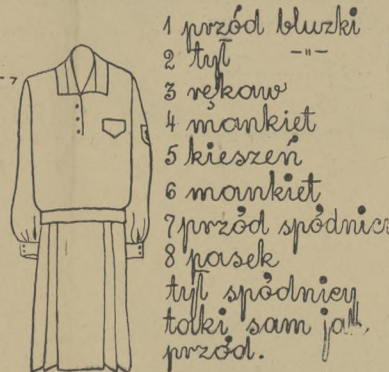 1 przód bluzki
2 tył —"—
3 rękaw
4 mankiet
5 kieszeń
6 mankiet
7 przód spódnicy
8 pasek
tył spódnicy
taki sam jak
przód.
7